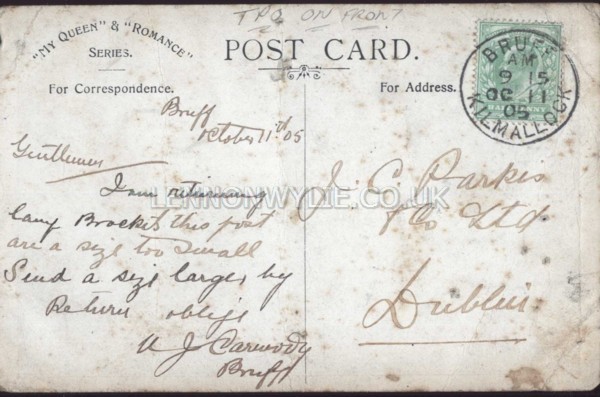 TPO ON FRONT
"MY QUEEN" & "ROMANCE"
SERIES.
POST CARD.
For Correspondence.
For Address.
BRUFF
AM
9 15
OC 11
05
KILMALLOCK
HALFPENNY
Bruff
October 11th 05
Gentlemen
I am returning
Lamp Brackets this post
are a size too small
Send a size larger by
Return oblige
J Carmody
Bruff
J. C. Parkes
& Co Ltd
Dublin
LENNONWYLIE.CO.UK